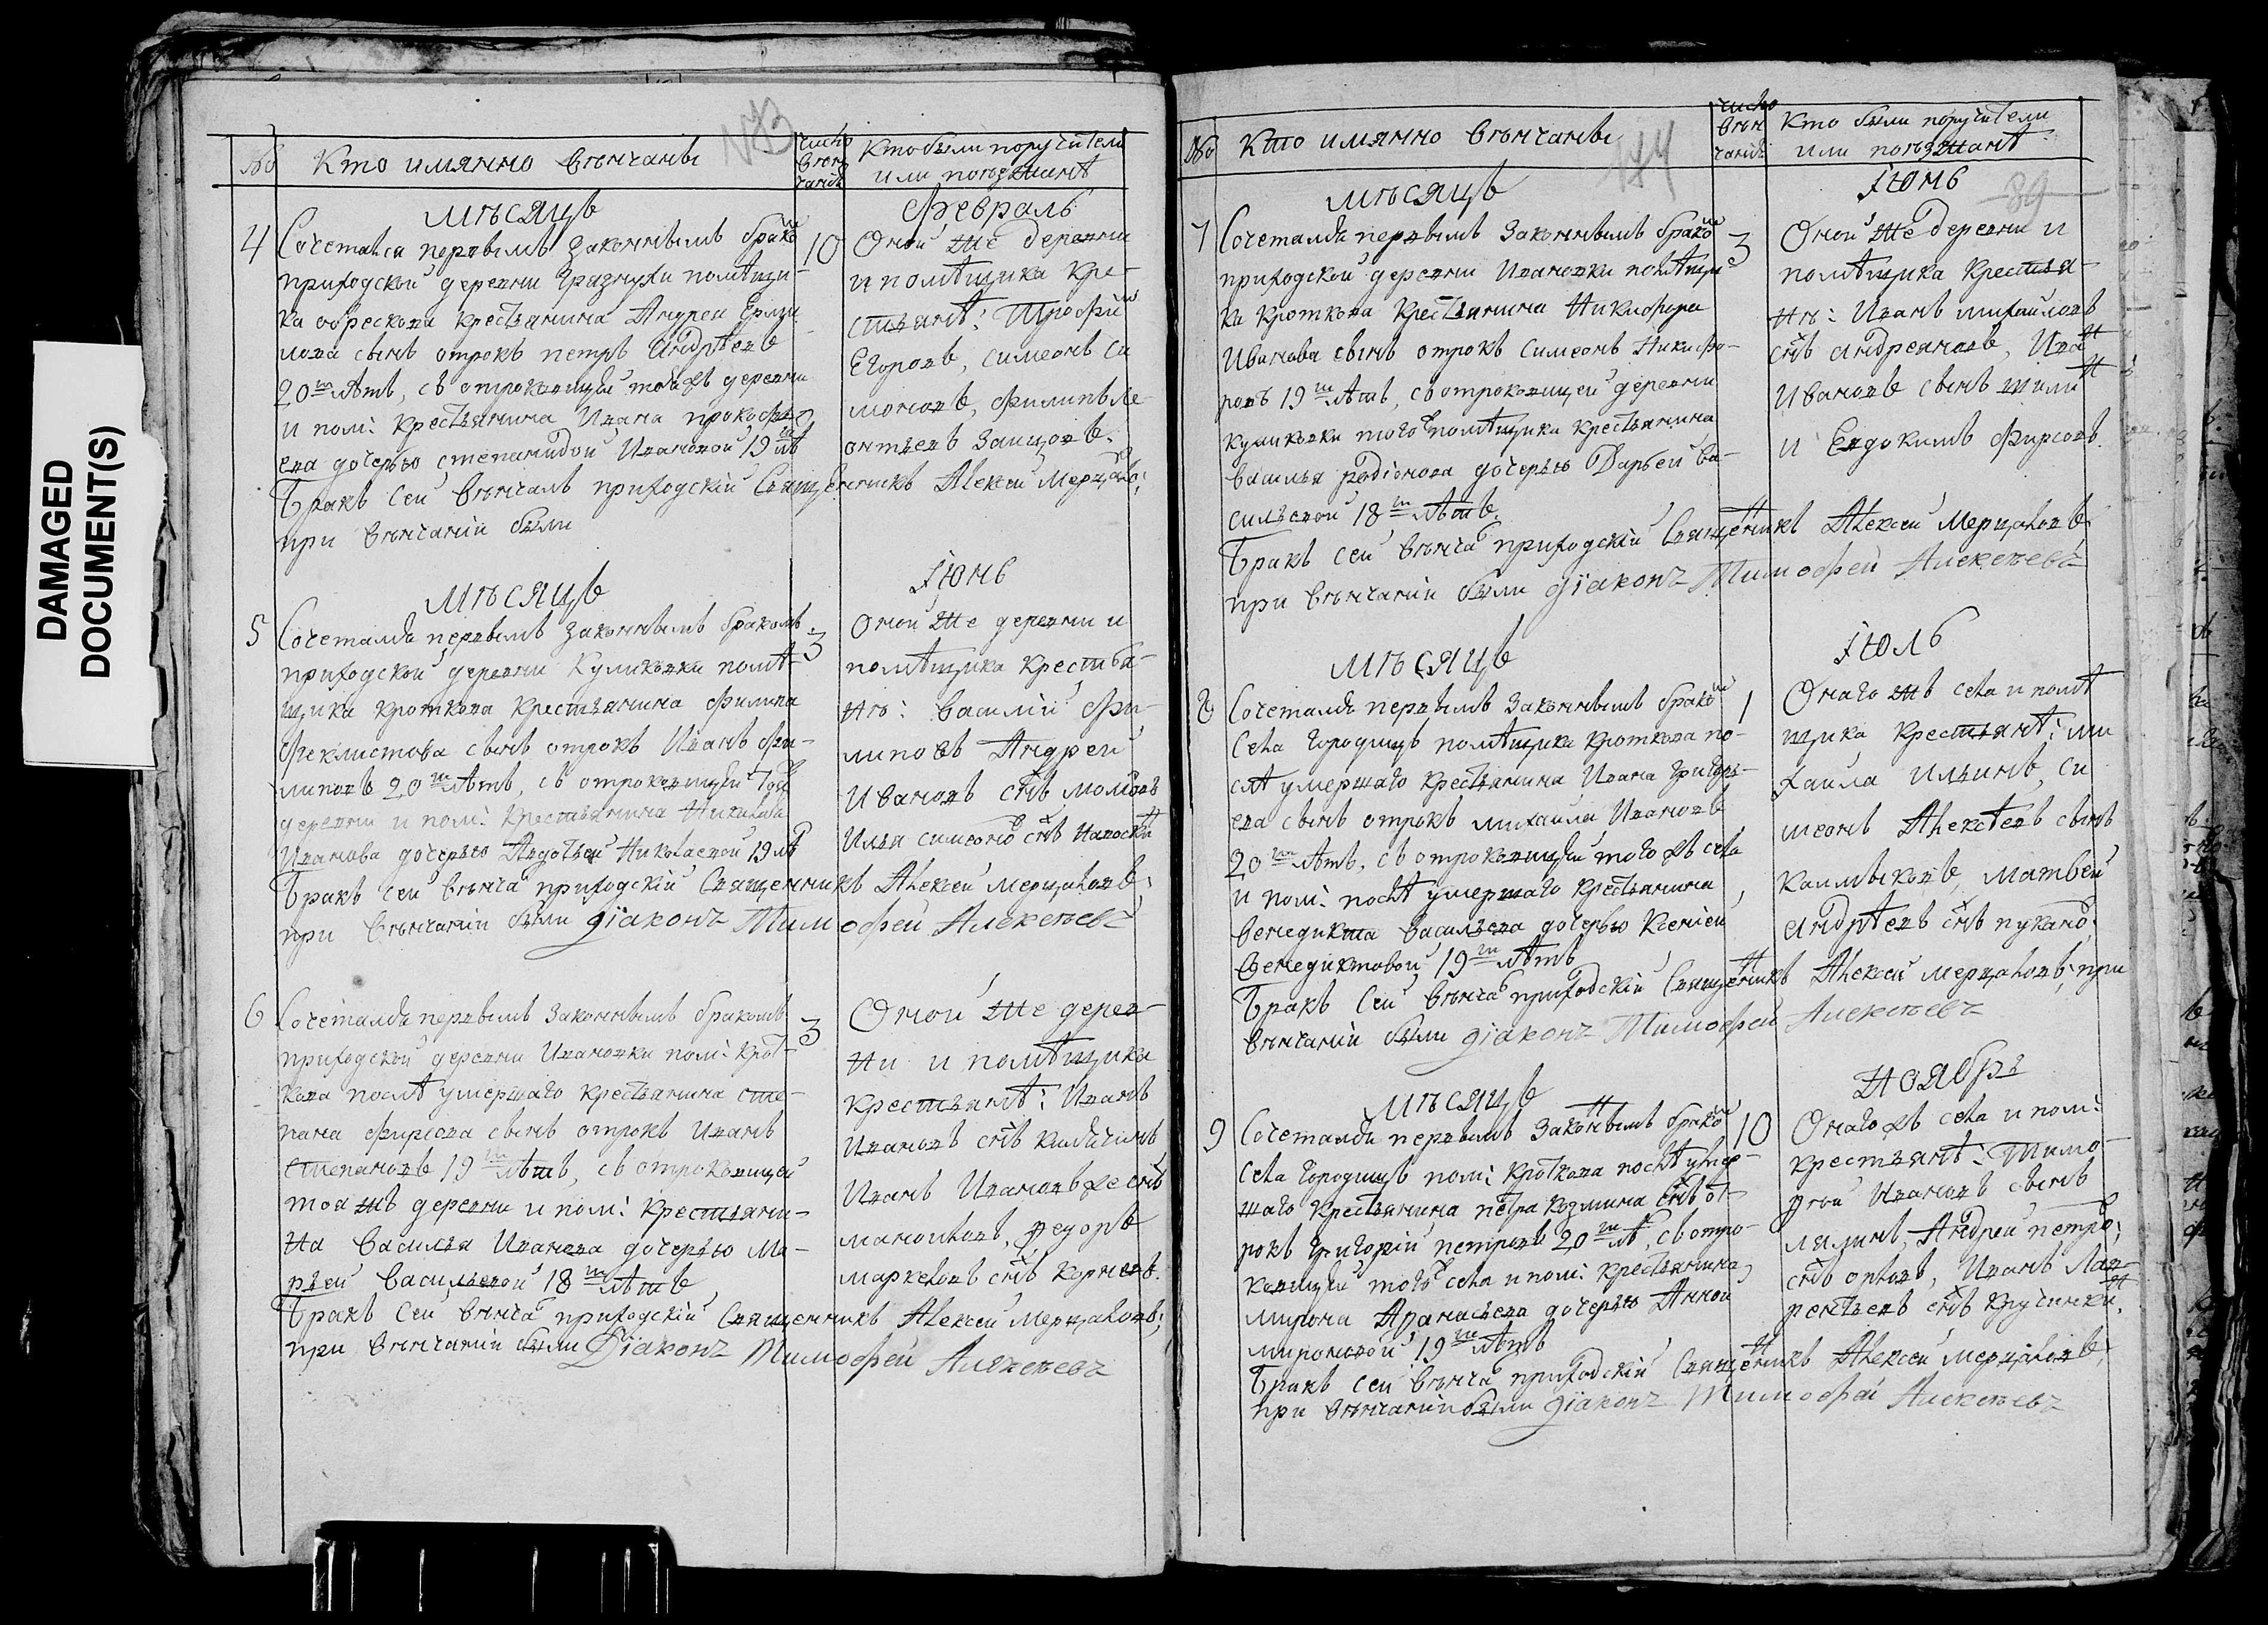 DAMAGED
DOCUMENT(S)
№
Кто имянно вѣнчаны
число вѣнчанiя
Кто были поручители
или поѣзжанѣ
мѣсяцъ
Февраль
4
Сочетался первымъ законнымъ бракомъ
приходской деревни Грязнухи помѣщи-
ка обрескова крестьянина Андрея Ерми
лова сынъ отрокъ петръ Андрѣевъ
20ти лѣтъ, съ отроковицей тойжъ деревни
и пом: крестьянина Ивана прокофье
ева дочерью степанидой Ивановой 19 лѣ
10
Оной же деревни
и помѣщика кре-
стьянѣ: Трофи
Егоровъ, симеонъ си
моновъ, филипъ Ле-
онтьевъ заицовъ.
Бракъ сей вѣнчалъ приходскiй Священникъ Алексей Мерцаловъ;
при вѣнчанiи были
мѣсяцъ
Iюнь
5
Сочетался первымъ законнымъ бракомъ
приходской деревни Куликовки помѣ-
щика кроткова крестьянина филипа
феклистова сынъ отрокъ Иванъ фи-
липовъ 20ти лѣтъ, съ отроковицей тойже
деревни и пом: крестьянина Николая
Иванова дочерью Авдотьей Николаевой 19 лѣ
3
Оной же деревни и
помѣщика крестья-
нѣ: василiй фи-
липовъ Андрей
Ивановъ снъ
Илья симеоно снъ
Бракъ сей вѣнча приходскiй Священникъ Алексей мерцаловъ;
при вѣнчанiи были дiаконъ Тимофей Алексѣевъ
6
Сочетался первымъ законнымъ бракомъ
приходской деревни Ивановки пом: крот-
кова послѣ умершаго крестьянина сте-
пана фирсова сынъ отрокъ Иванъ
степановъ 19ти лѣтъ, съ отроковицей
тоя жъ деревни и пом: крестьяни-
на василья Иванова дочерью Ма-
рьей васильевой 18ти лѣтъ
3
Оной же дерев-
ни и помѣщика
крестьянѣ: Иванъ
Ивановъ снъ
Иванъ Ивановъ же снъ
Федоръ
маркеловъ снъ корнеевъ.
Бракъ сей вѣнча приходскiй Священникъ Алексей мерцаловъ;
при вѣнчанiи были Дiаконъ Тимофей Алексѣевъ
№
Кто имянно вѣнчаны
число вѣнчанiя
Кто были поручители
или поѣзжанѣ
89
мѣсяцъ
Iюнь
7
Сочетался первымъ законнымъ бракомъ
приходской деревни Ивановки помѣщи
ка кроткова крестьянина Никифора
Иванова сынъ отрокъ симеонъ Никифо-
ровъ 19ти лѣтъ, съ отроковицей деревни
куликовки того помѣщика крестьянина
василья родiонова дочерью Дарьей ва-
сильевой 18ти лѣтъ.
3
Оной же деревни и
помѣщика крестья-
нѣ: Иванъ михайловъ
снъ андреяновъ, Иван
Ивановъ сынъ
и Евдокимъ фирсовъ.
Бракъ сей вѣнча приходскiй Священникъ Алексей Мерцаловъ
при вѣнчанiи были дiаконъ Тимофей Алексѣевъ
мѣсяцъ
Iюль
8
Сочетался первымъ законнымъ бракомъ
села городищъ помѣщика кроткова по-
слѣ умершаго крестьянина Ивана григорь-
ева сынъ отрокъ михайла Ивановъ
20ти лѣтъ, съ отроковицей того жъ села
и пом: послѣ умершаго крестьянина
венедикта васильева дочерью Ксенiей
Венедиктовой 19ти лѣтъ
1
Онаго жъ села и помѣ
щика крестьянѣ: ми
хайла Ильинъ, си
меонъ Алексѣевъ сынъ
калмыковъ, матвей
андрѣевъ снъ
Бракъ сей вѣнча приходскiй Священникъ Алексей мерцаловъ; при
вѣнчанiи были дiаконъ Тимофей Алексѣевъ
мѣсяцъ
Ноябрь
9
Сочетался первымъ законнымъ бракомъ
села городищъ пом: кроткова послѣ умер-
шаго крестьянина петра козмина снъ от-
рокъ григорiй петровъ 20ти лѣ, съ отро-
ковицей тогоже села и пом: крестьянина
мирона Афанасьева дочерью Анной
мироновой 19ти лѣтъ
10
Онаго жъ села и пом:
крестьянѣ: Тимо-
фей Ивановъ сынъ
Андрей петро;
снъ орловъ, Иванъ Лав-
рентьевъ снъ кручинкин.
Бракъ сей вѣнча приходскiй Священникъ Алексей Мерцаловъ;
при вѣнчанiи были дiаконъ Тимофей Алексѣевъ